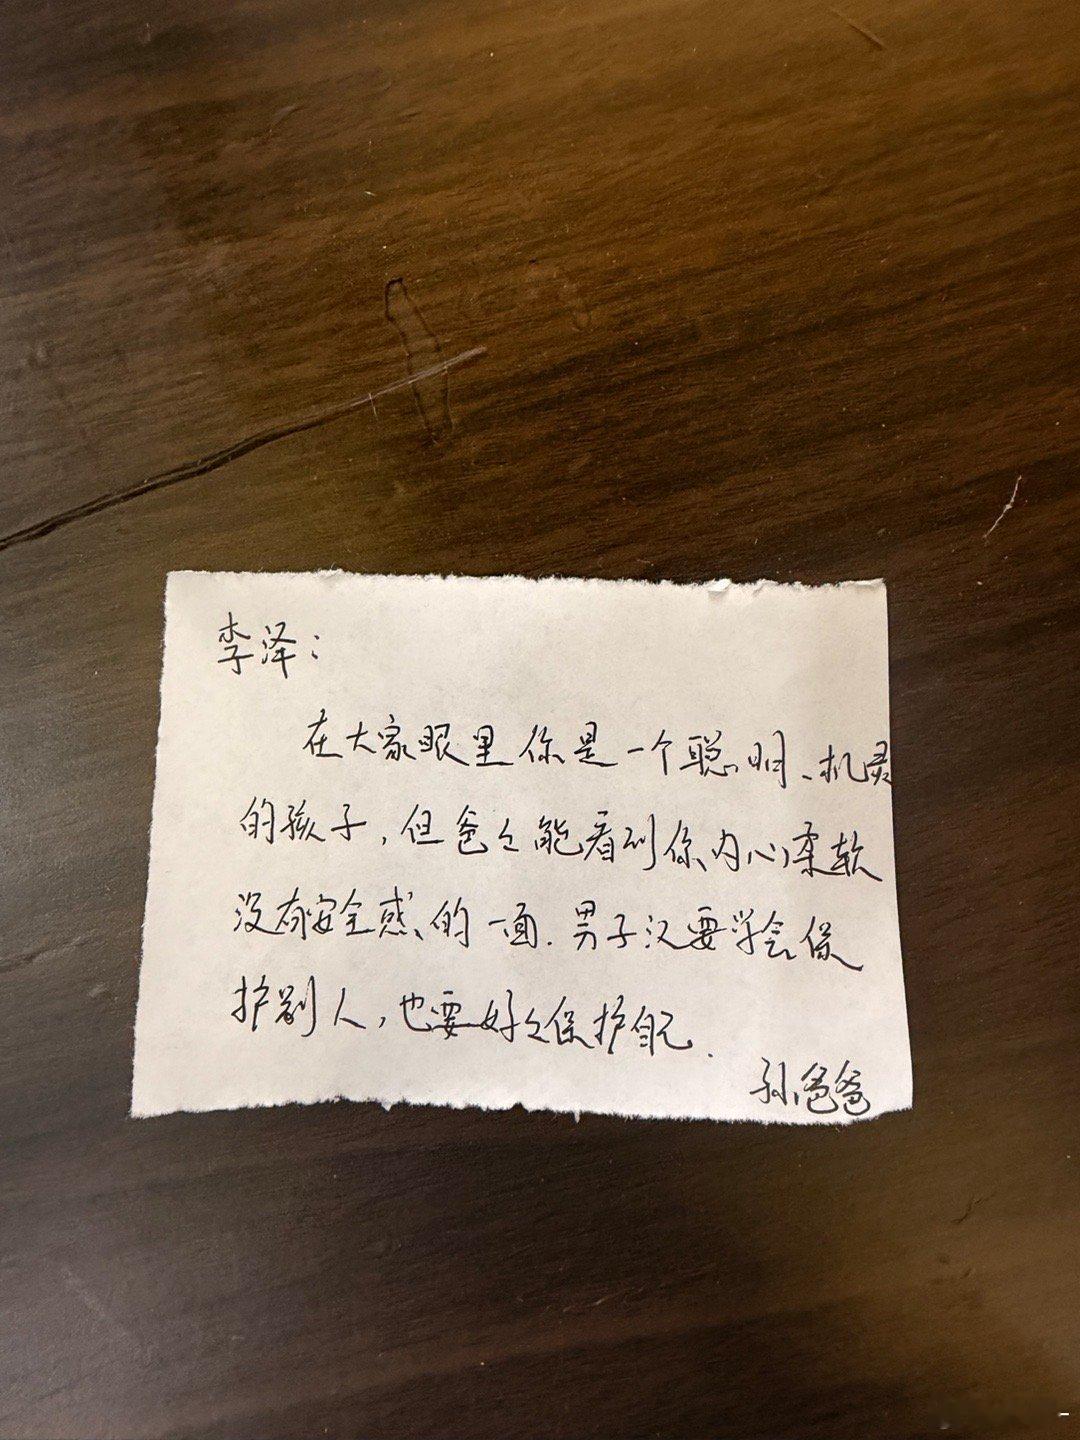 李泽：
在大家眼里你是一个聪明、机灵
的孩子，但爸々能看到你内心柔软
没有安全感的一面.男子汉要学会保
护别人，也要好々保护自己.
孙爸爸